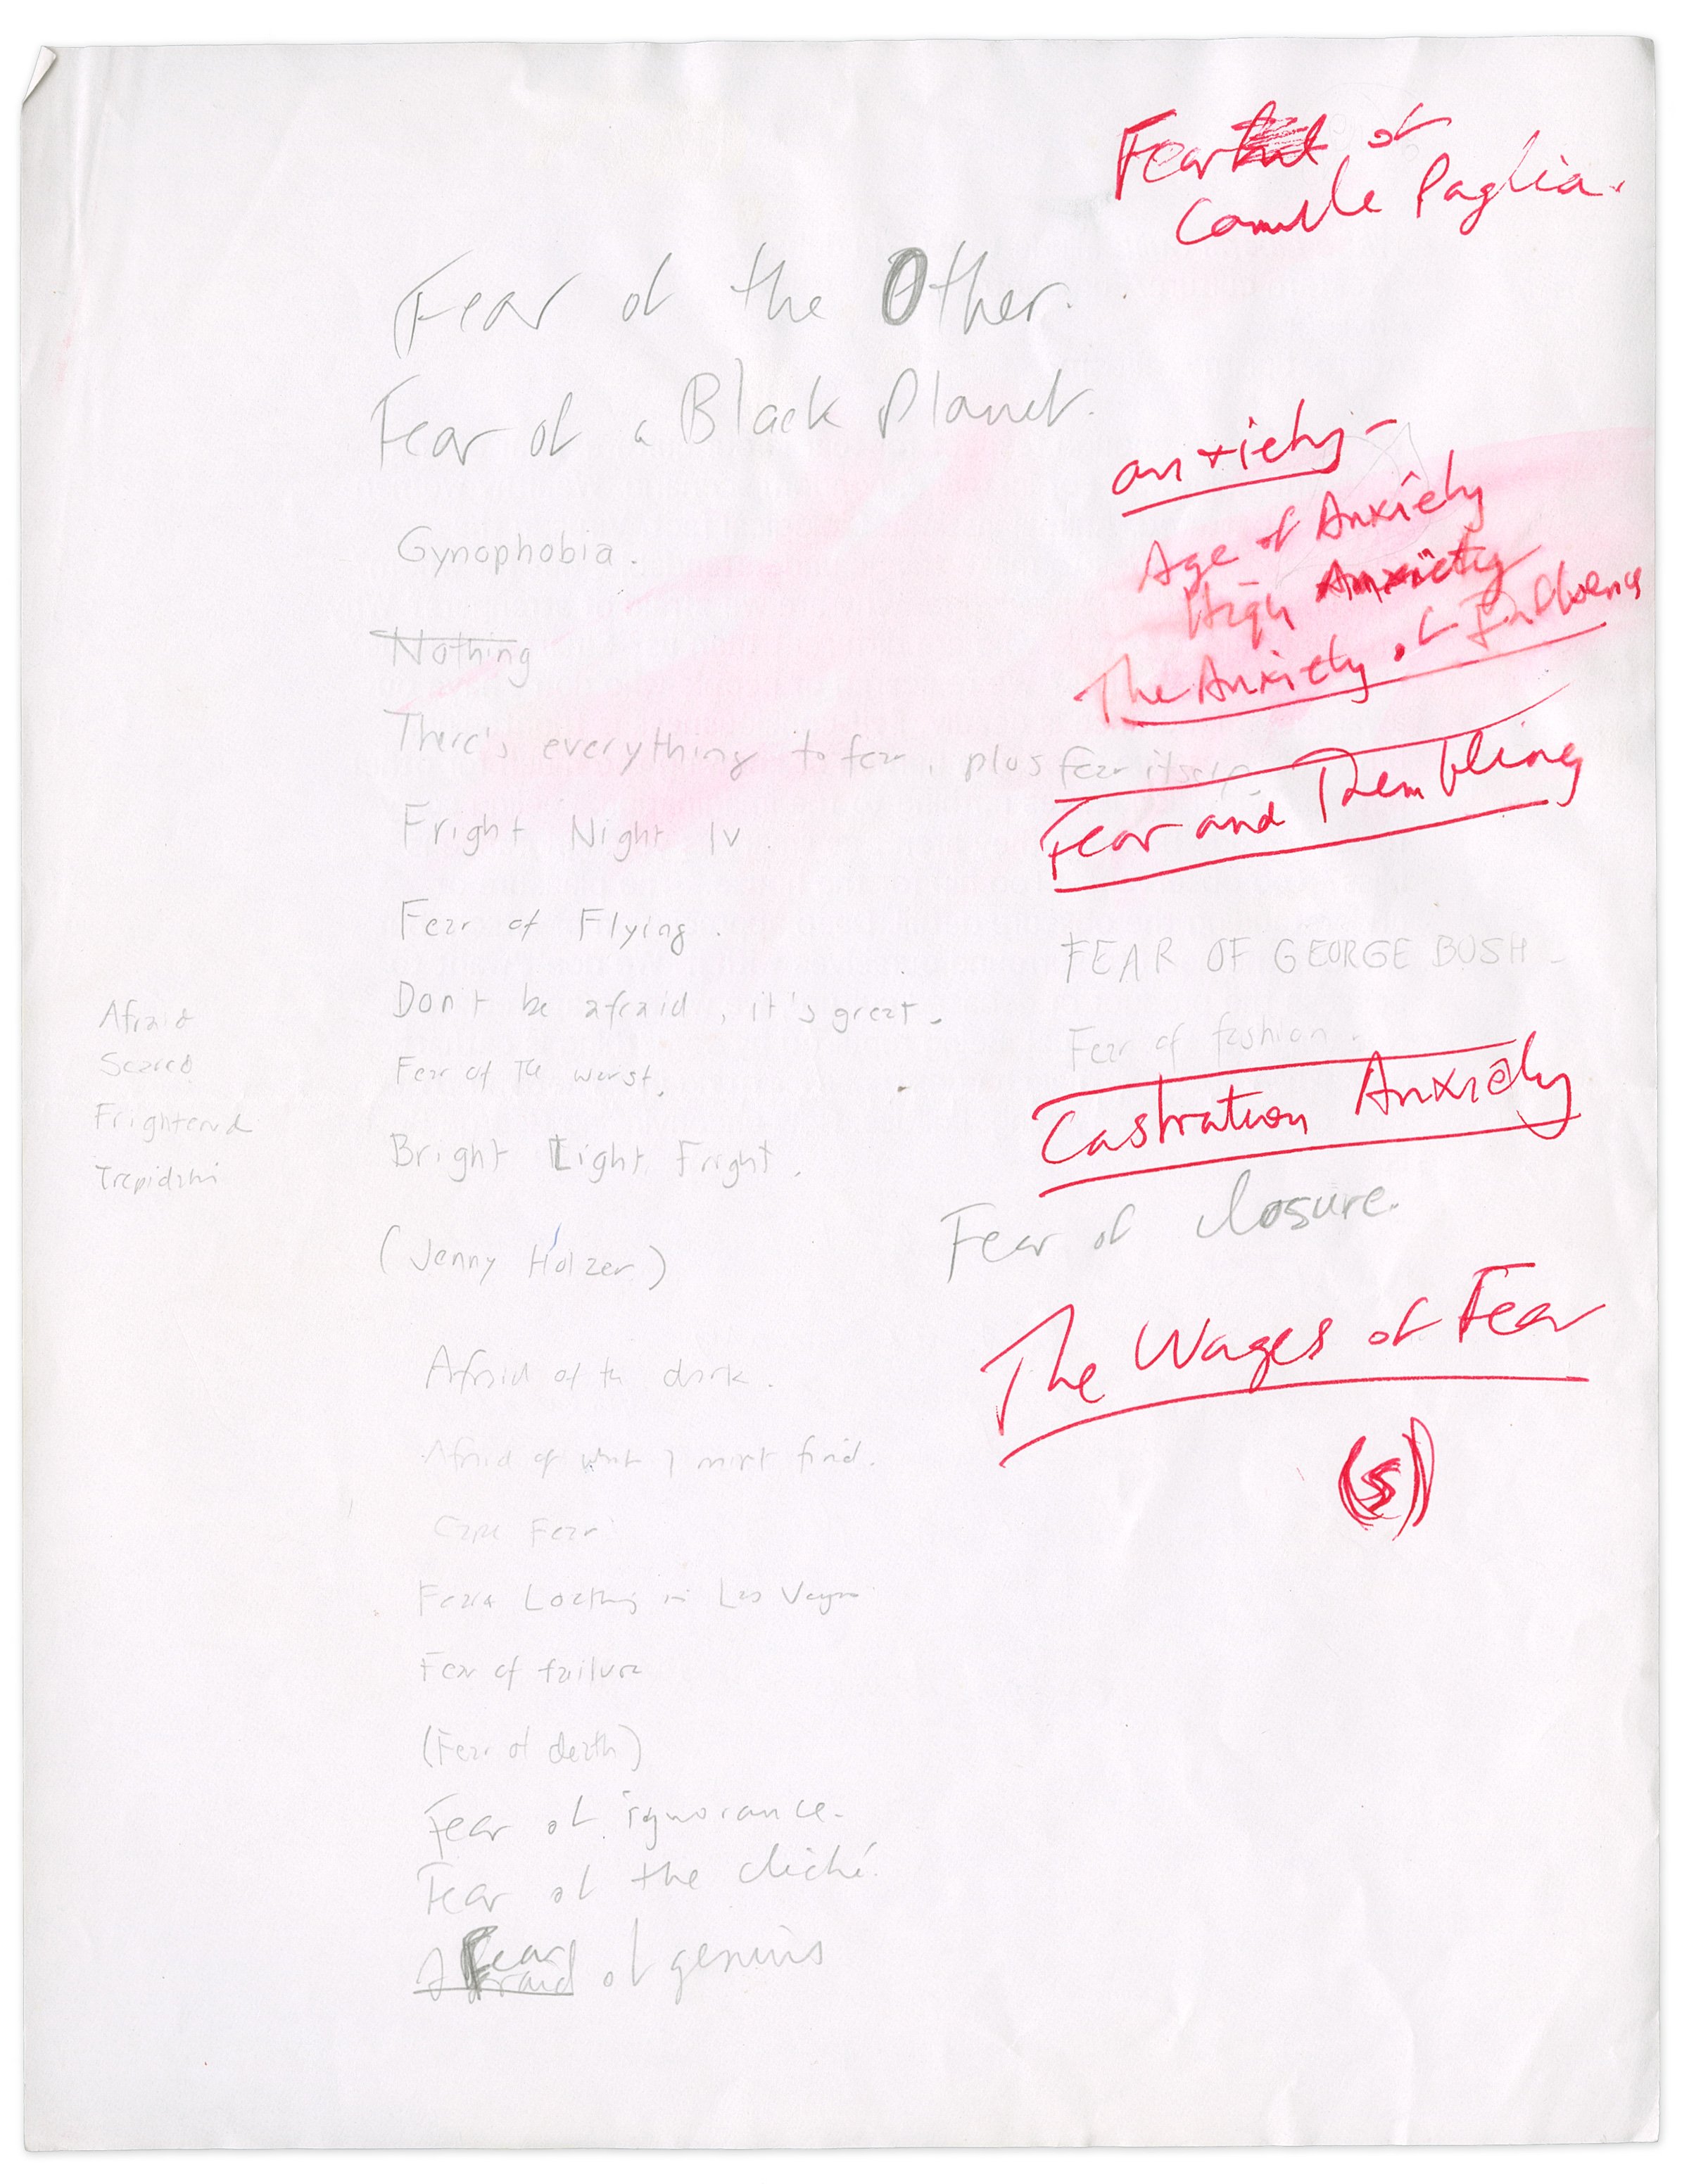 Fear of
Camille Paglia.
Fear of the Other.
Fear of a Black Planet.
Gynophobia.
Nothing
There's everything to fear, plus fear itself.
Fright Night IV
Fear of Flying.
Don't be afraid, it's great.
Fear of The worst.
Bright Light Fright.
(Jenny Holzer)
Afraid of the dark.
Afraid of what I might find.
Cape Fear
Fear & Loathing in Las Vegas
Fear of failure
(Fear of death)
Fear of ignorance.
Fear of the cliché.
Fear
Afraid of genius
Afraid
Scared
Frightened
anxiety-
Age of Anxiety
High Anxiety
The Anxiety of Influence
Fear and Trembling
FEAR OF GEORGE BUSH
Fear of fashion.
Castration Anxiety
Fear of closure.
The Wages of Fear
(s)